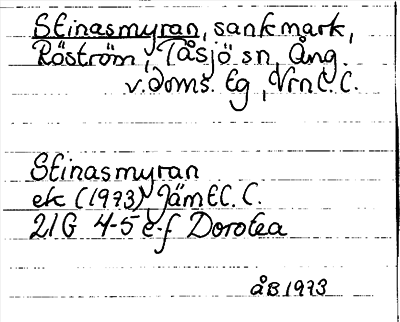 Stinasmyran, sank mark,
Röström, Tåsjö sn, Ång.
v. doms. lg, Vrnl. C.
Stinasmyran
ek (1973) Jämtl. C.
21G 4-5 e-f Dorotea
åB 1973